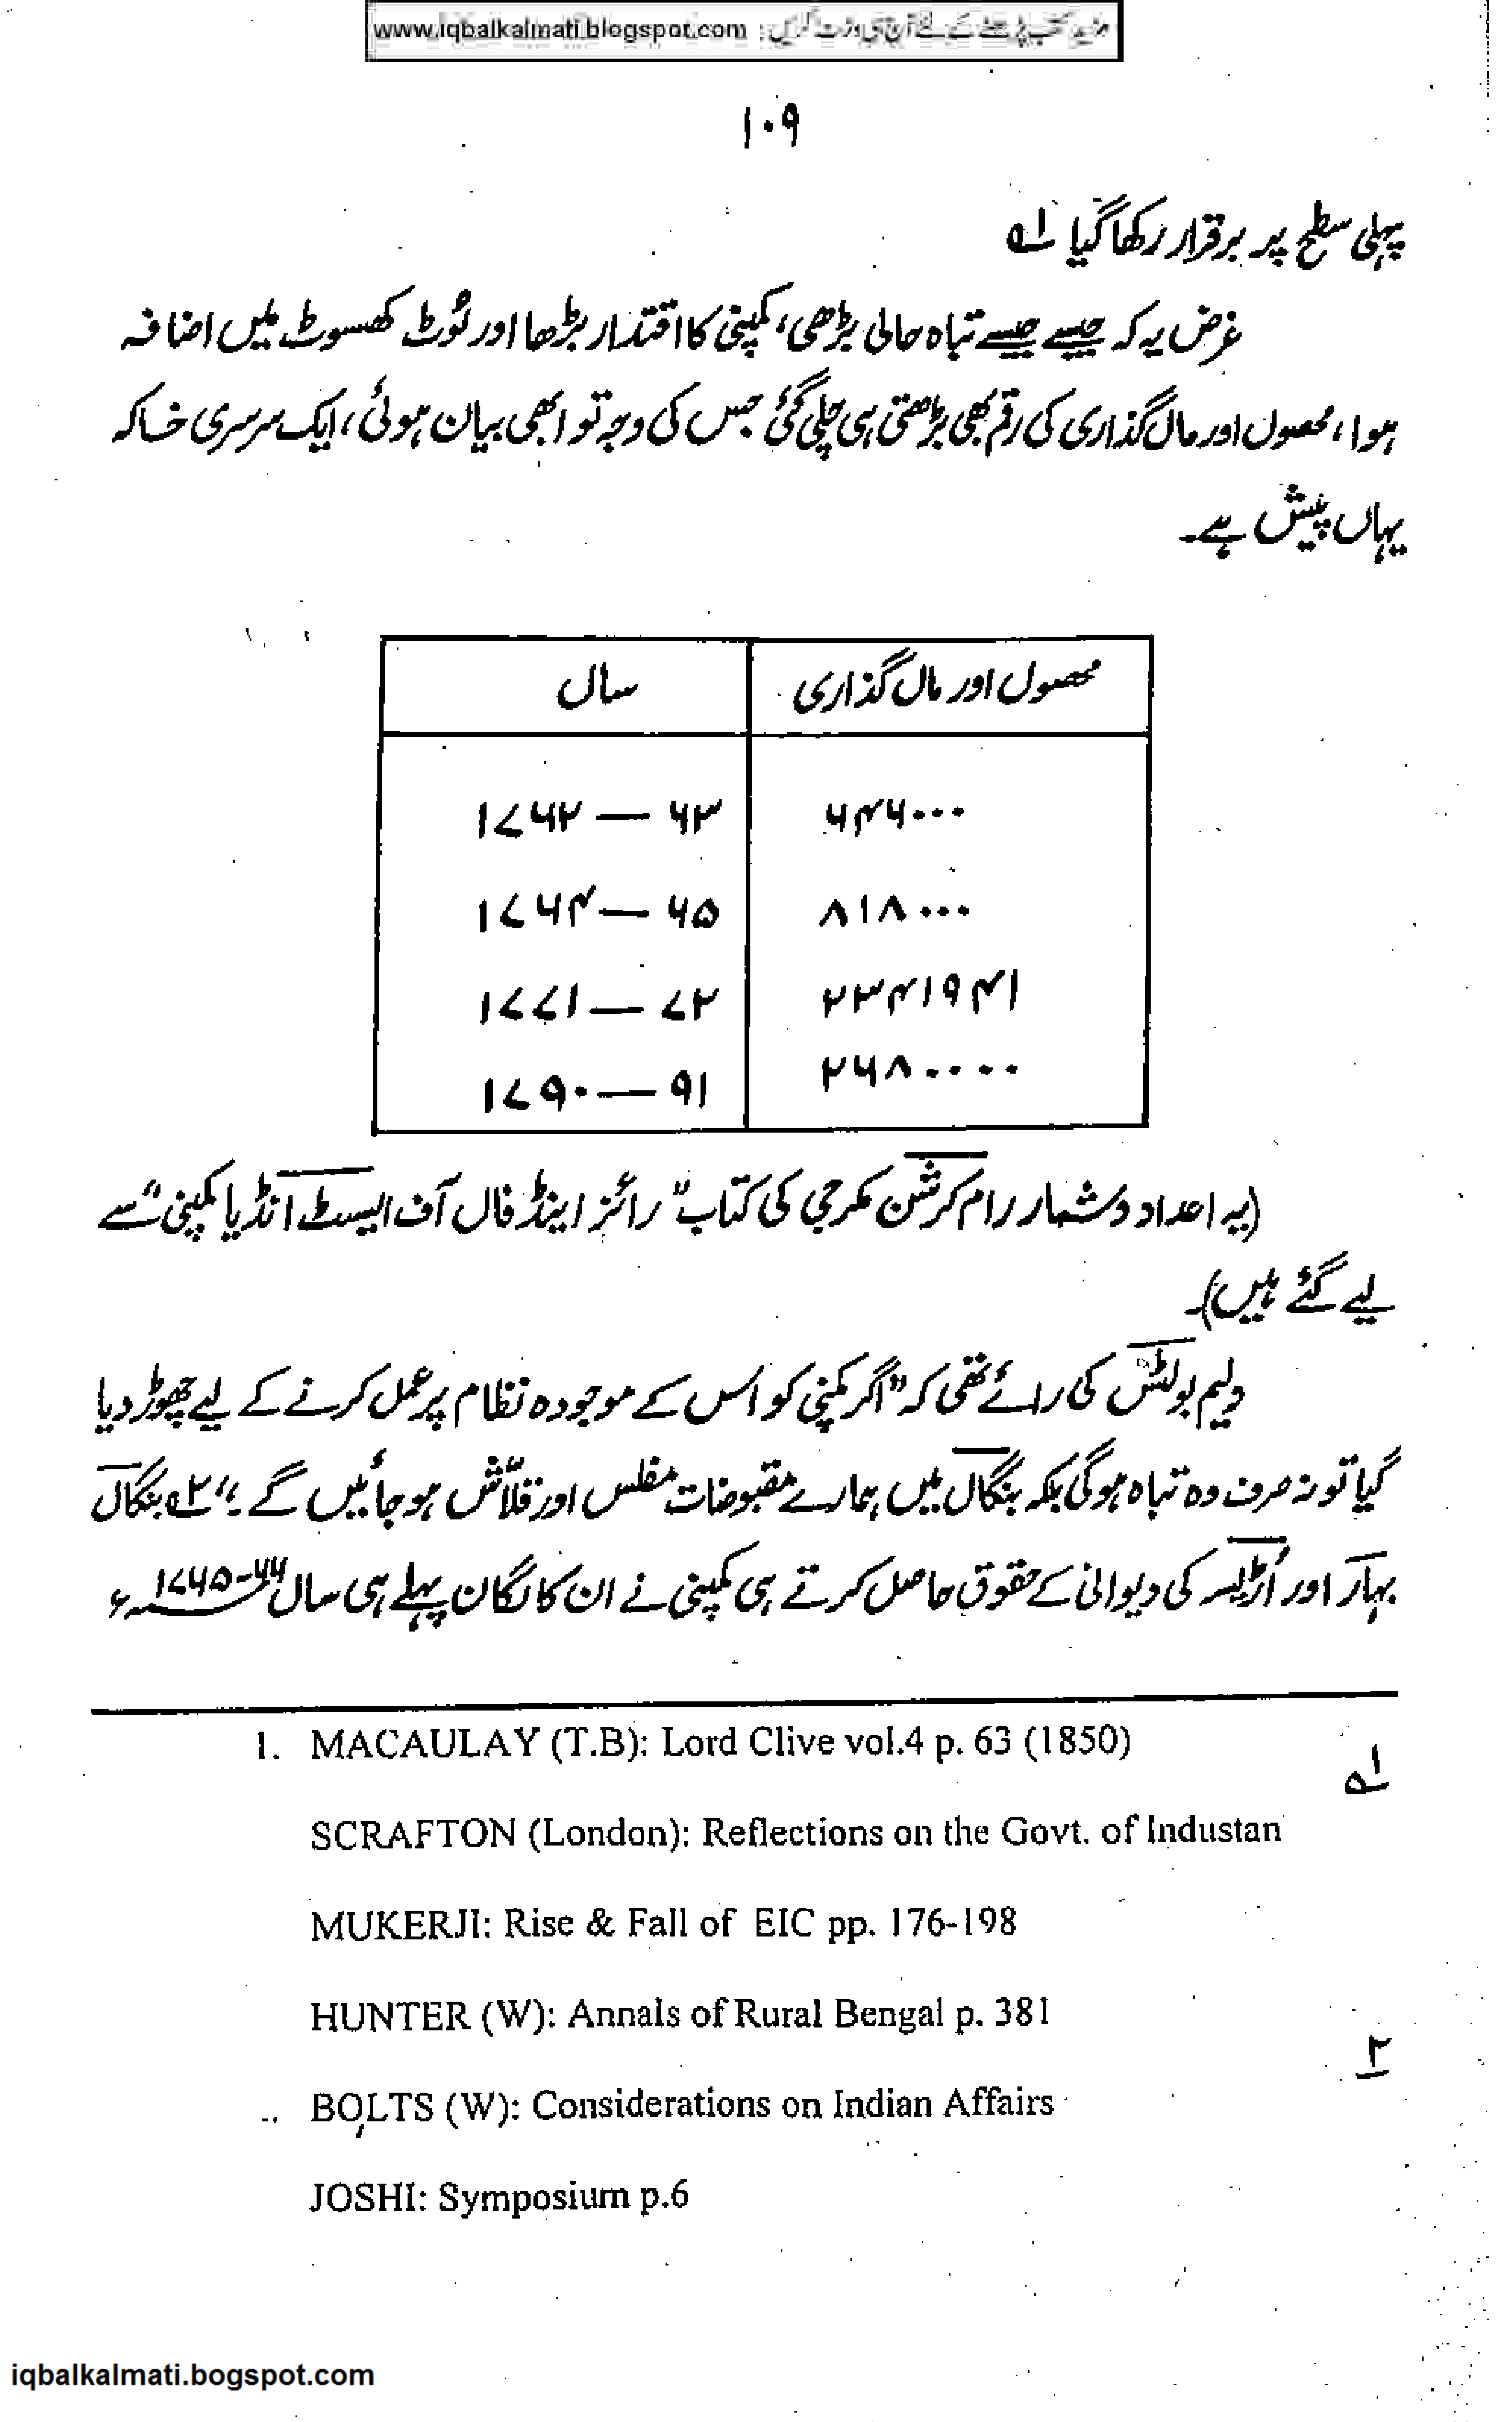 مزید کتب پڑھنے کے لئے آج ہی وزٹ کریں : www.iqbalkalmati.blogspot.com
۱۰۹
پہلی سطح پر برقرار رکھا گیا ۱ہ
غرض یہ کہ جیسے جیسے تباہ حالی بڑھی، کمپنی کا اقتدار بڑھا اور لُوٹ کھسوٹ میں اضافہ
ہوا، محصول اور مال گذاری کی رقم بھی بڑھتی ہی چلی گئی جس کی وجہ تو ابھی بیان ہوئی، ایک سرسری خاکہ
یہاں پیش ہے۔
محصول اور مال گذاری سال
۶۴۶۰۰۰ ۱۷۶۲ — ۶۳
۸۱۸۰۰۰ ۱۷۶۴ — ۶۵
۲۳۴۱۹۴۱ ۱۷۷۱ — ۷۲
۲۶۸۰۰۰۰ ۱۷۹۰ — ۹۱
(یہ اعداد و شمار رام کرشن مکرجی کی کتاب "رائز اینڈ فال آف ایسٹ انڈیا کمپنی" سے
لیے گئے ہیں)۔
ولیم بولٹس کی رائے تھی کہ "اگر کمپنی کو اس کے موجودہ نظام پر عمل کرنے کے لیے چھوڑ دیا
گیا تو نہ صرف وہ تباہ ہوگی بلکہ بنگال میں ہمارے مقبوضات مفلس اور قلاّش ہو جائیں گے۔" ۲ہ بنگال
بہار اور اُڑیسہ کی دیوانی کے حقوق حاصل کرتے ہی کمپنی نے ان کا لگان پہلے ہی سال ۶۶-۱۷۶۵ء
1. MACAULAY (T.B): Lord Clive vol.4 p. 63 (1850)
۱ہ
SCRAFTON (London): Reflections on the Govt. of Industan
MUKERJI: Rise & Fall of EIC pp. 176-198
HUNTER (W): Annals of Rural Bengal p. 381
۲
.. BOLTS (W): Considerations on Indian Affairs
JOSHI: Symposium p.6
iqbalkalmati.bogspot.com